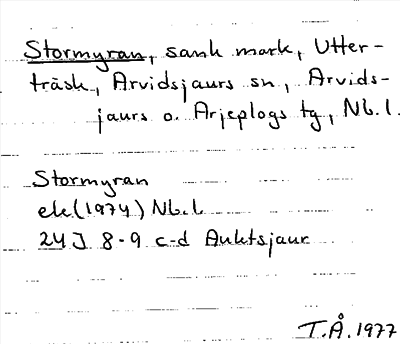 Stormyran, sank mark, Utter-
träsk, Arvidsjaurs sn, Arvids-
jaurs o. Arjeplogs tg, Nb.l.
Stormyran
ek (1974) Nb.l.
24J 8-9 c-d Auktsjaur
T.Å. 1977